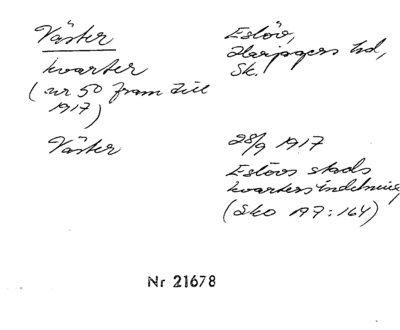 Väster
kvarter
(nr 50 fram till
1917)
Väster
Eslöv,
Harjagers hd,
Sk.
28/9 1917
Eslövs stads
kvartersindelning
(Sko A7:164)
Nr 21678